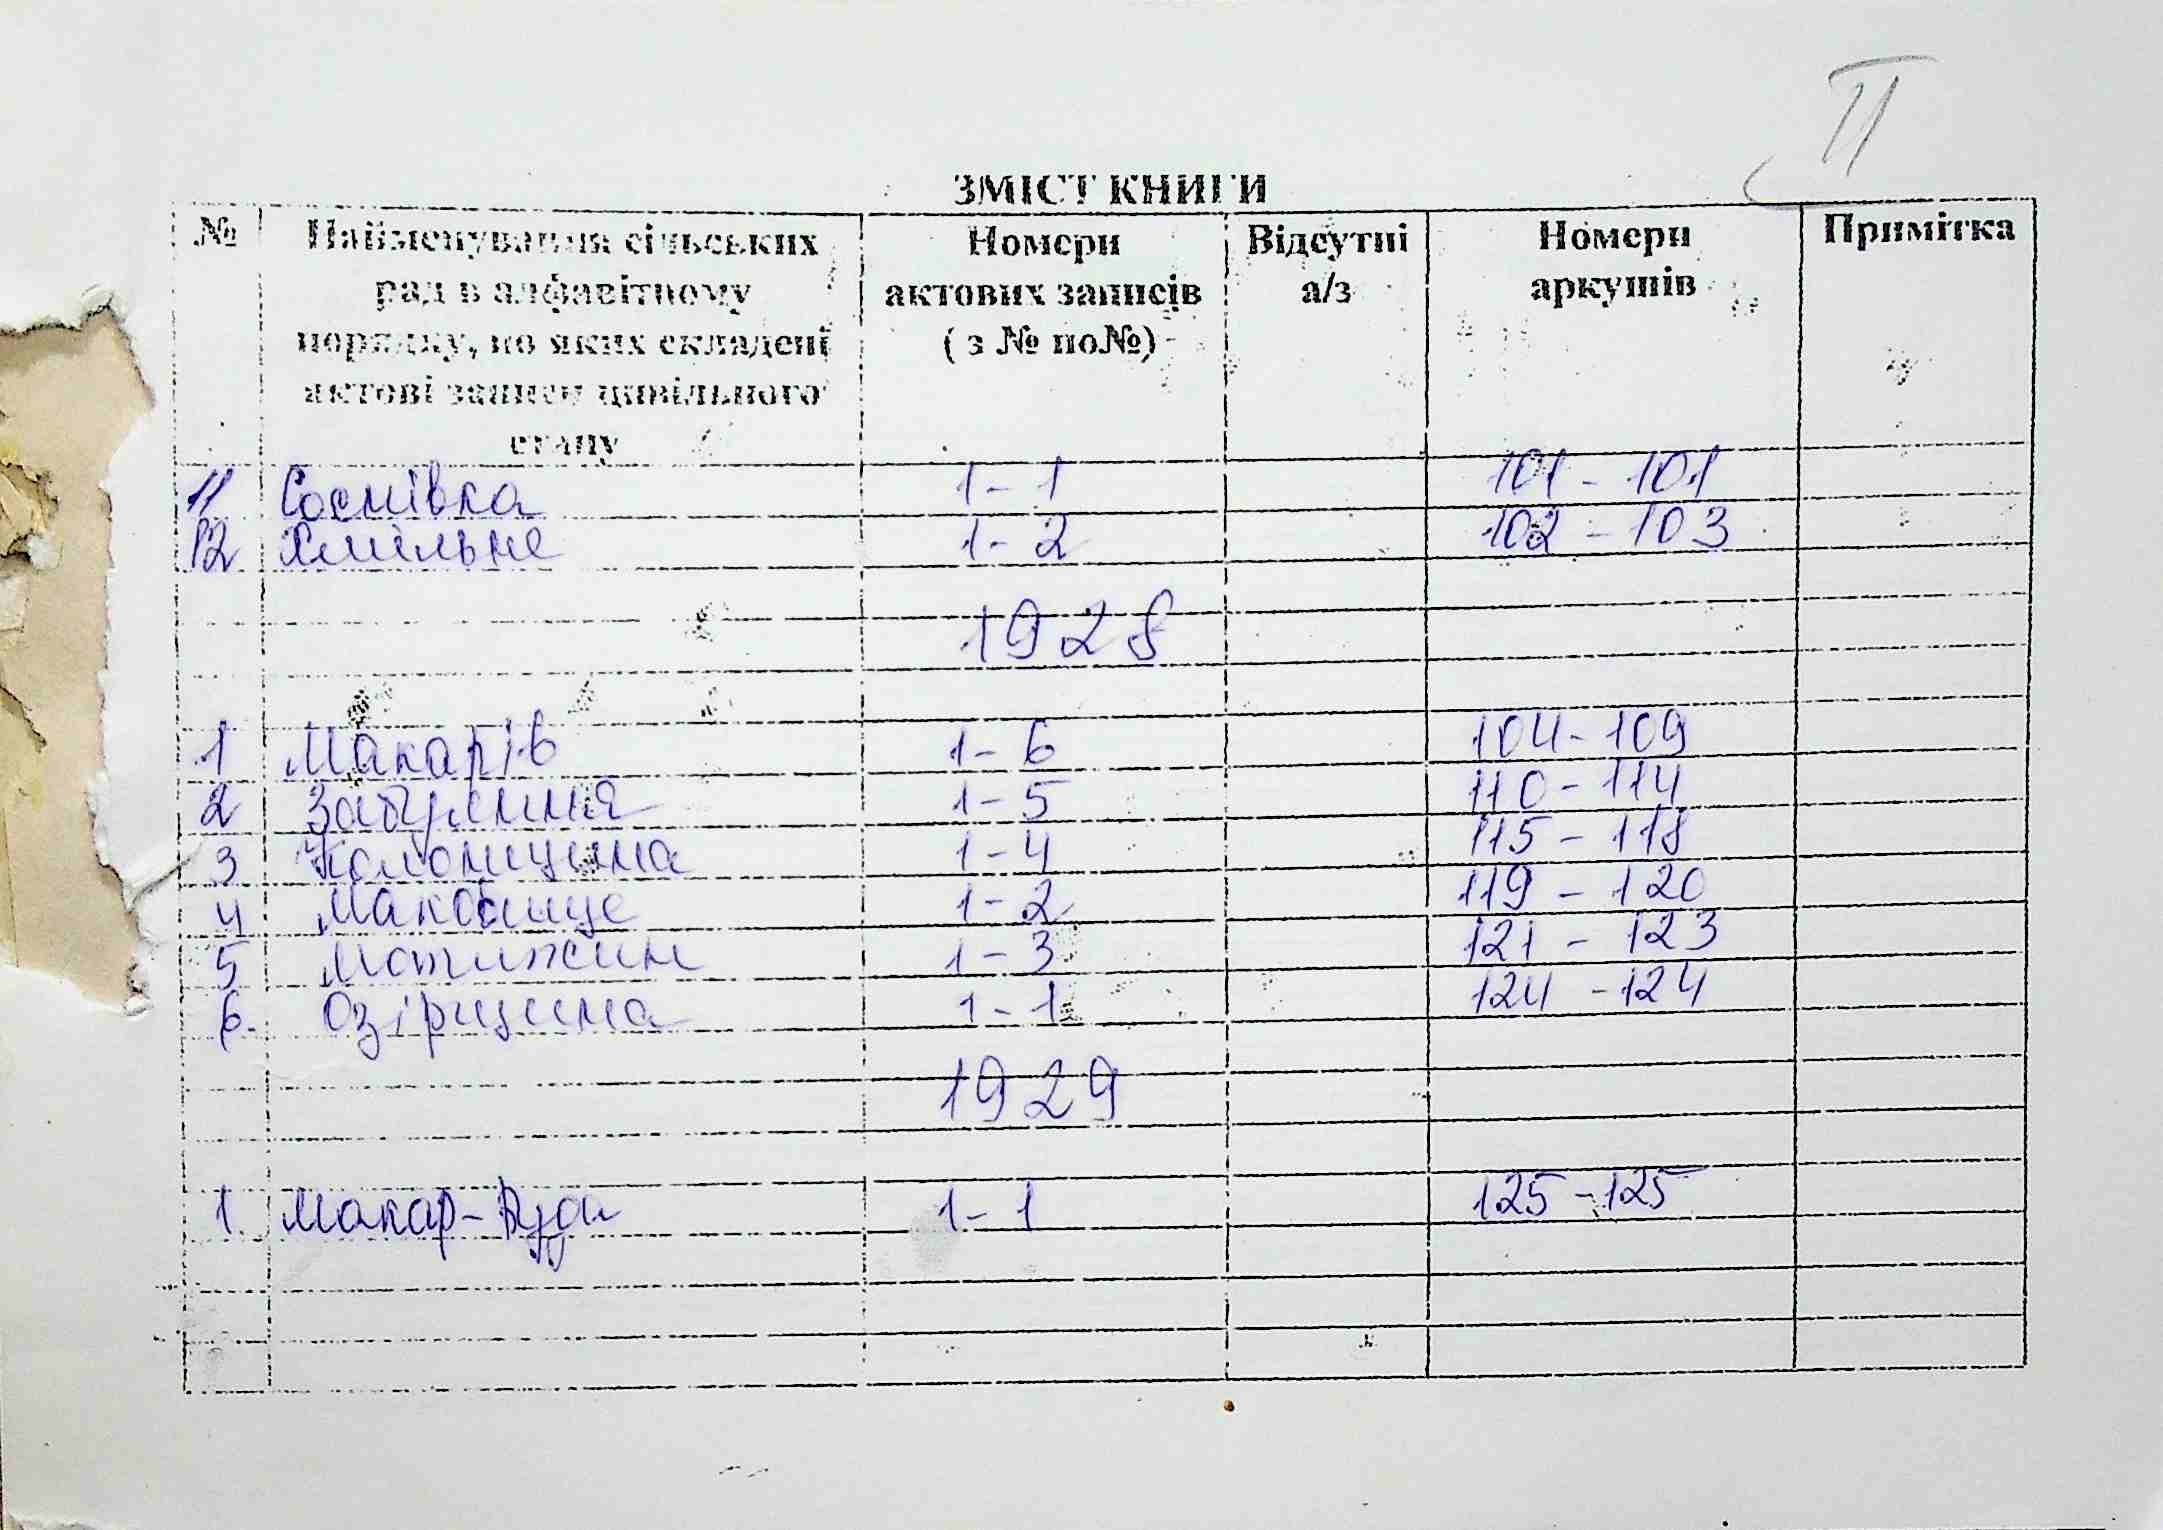 II
ЗМІСТ КНИГИ
№ Найменування сільських рад в алфавітному порядку, по яких складені актові записи цивільного стану Номери актових записів ( з № по№) Відсутні а/з Номери аркушів Примітка
11 Соснівка 1-1 101-101
12 Хмільне 1-2 102-103
1928
1 Макарів 1-6 104-109
2 Забуяння 1-5 110-114
3 Колонщина 1-4 115-118
4 Маковище 1-2 119-120
5 Мотижин 1-3 121-123
6. Озірщина 1-1 124-124
1929
1. Макар-Буда 1-1 125-125